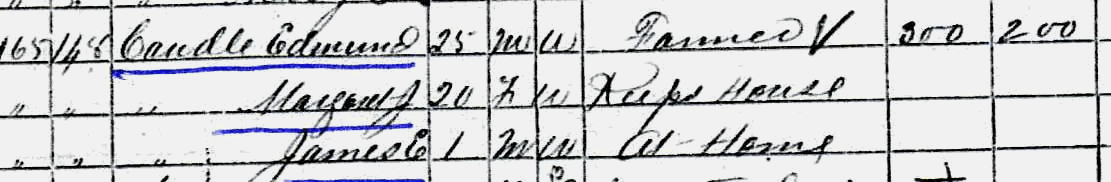 165 148 Caudle Edmund 25 M W Farmer V 300 200
" " " Margaret J 20 F W Keeps House
" " " James E 1 M W At Home